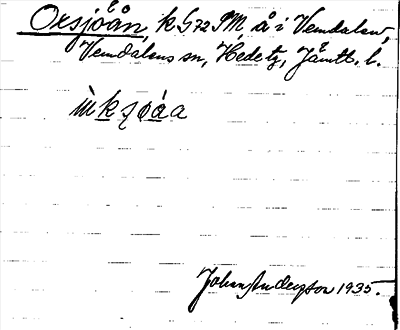 Orsjöån, k G72 SM, å i Vemdalen,
Vemdalens sn, Hede tg, Jämtl. l.
ı̀kʂøáa
Johan Anderzson 1935.